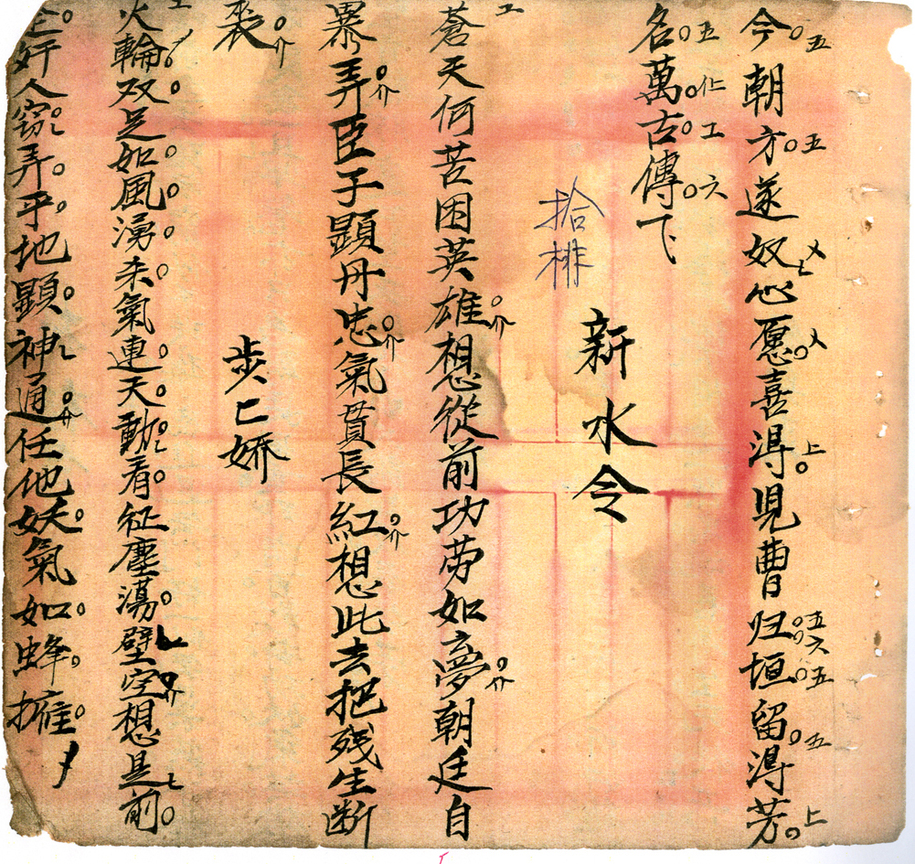 今朝方遂奴心愿喜淂見曹归垣留淂芳
名萬古傳飞
拾排
新水令
蒼天何苦困英雄想從前功劳如夢朝廷自
暴弄臣子顕丹忠氣貫長紅想此去把残生断
步匕娇
火輪双足如風湧杀氣連天動看征塵蕩壁空想是前
奸人窃弄乎地顕神通任他妖氣如蜂擁